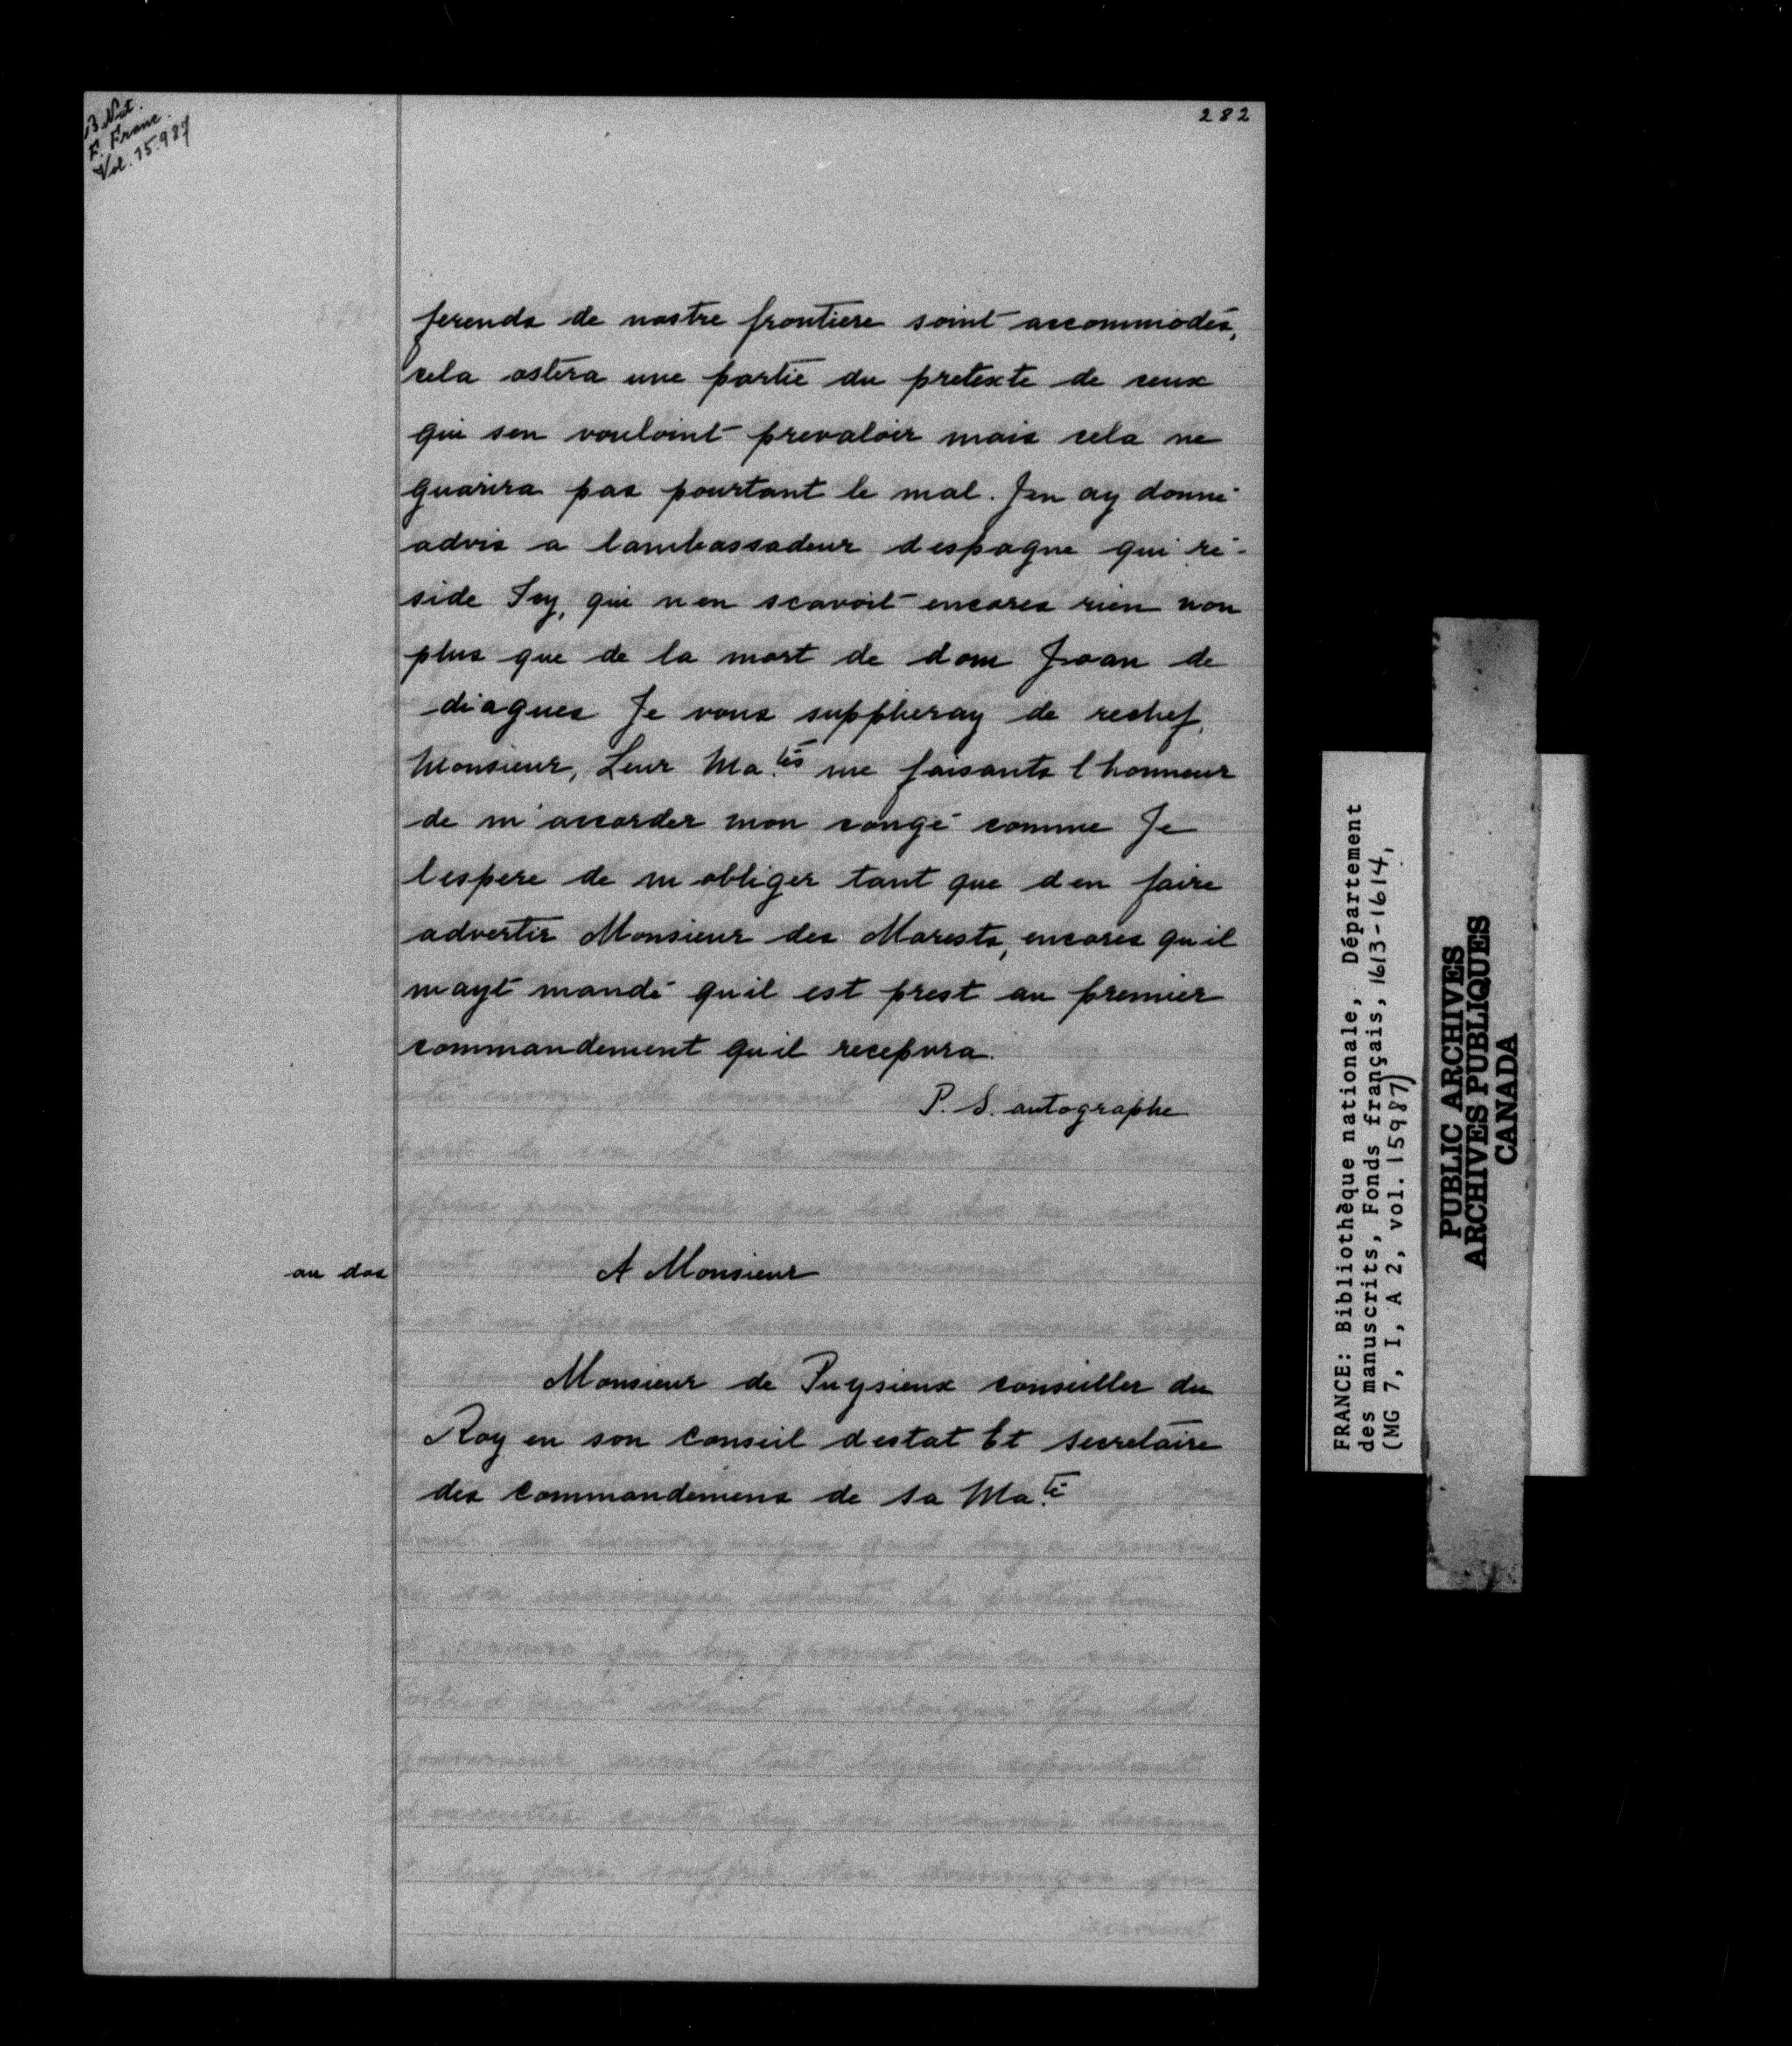 B. Nat.
F. Franc.
Vol. 15.987
282
ferends de nostre frontiere soint accommodés,
cela ostera une partie du pretexte de ceux
qui sen vouloint prevaloir mais cela ne
guarira pas pourtant le mal. Jen ay donné
advis a lambassadeur despagne qui ré-
side Icy, qui nen scavoit encores rien non
plus que de la mort de dom Joan de
diagues Je vous supplieray de rechef,
Monsieur, Leur Ma.tés me faisants l honneur
de m'accorder mon congé comme Je
lespere de m obliger tant que den faire
advertir Monsieur des Marests, encores quil
mayt mandé quil est prest au premier
commandement quil recepvra.
P. S. autographe
au dos
A Monsieur
Monsieur de Puysieux conseiller du
Roy en son Conseil destat Et Secretaire
des Commandemens de sa Ma.té
FRANCE: Bibliothèque nationale, Département
des manuscrits, Fonds français, 1613-1614,
(MG 7, I, A 2, vol. 15987)
PUBLIC ARCHIVES
ARCHIVES PUBLIQUES
CANADA